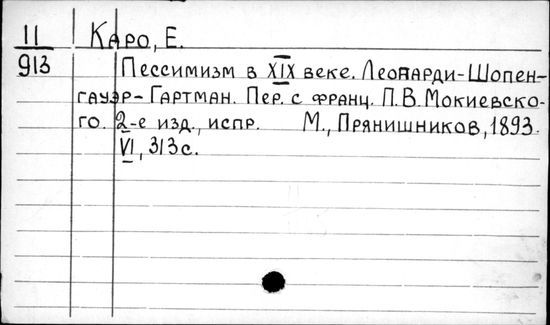 11 Каро, Е.
913 Пессимизм в XIX веке. Леопарди-Шопен-
гауэр-Гартман. Пер. с франц. П.В. Мокиевско-
го. 2-е изд., испр. М., Прянишников, 1893.
VI, 313 с.